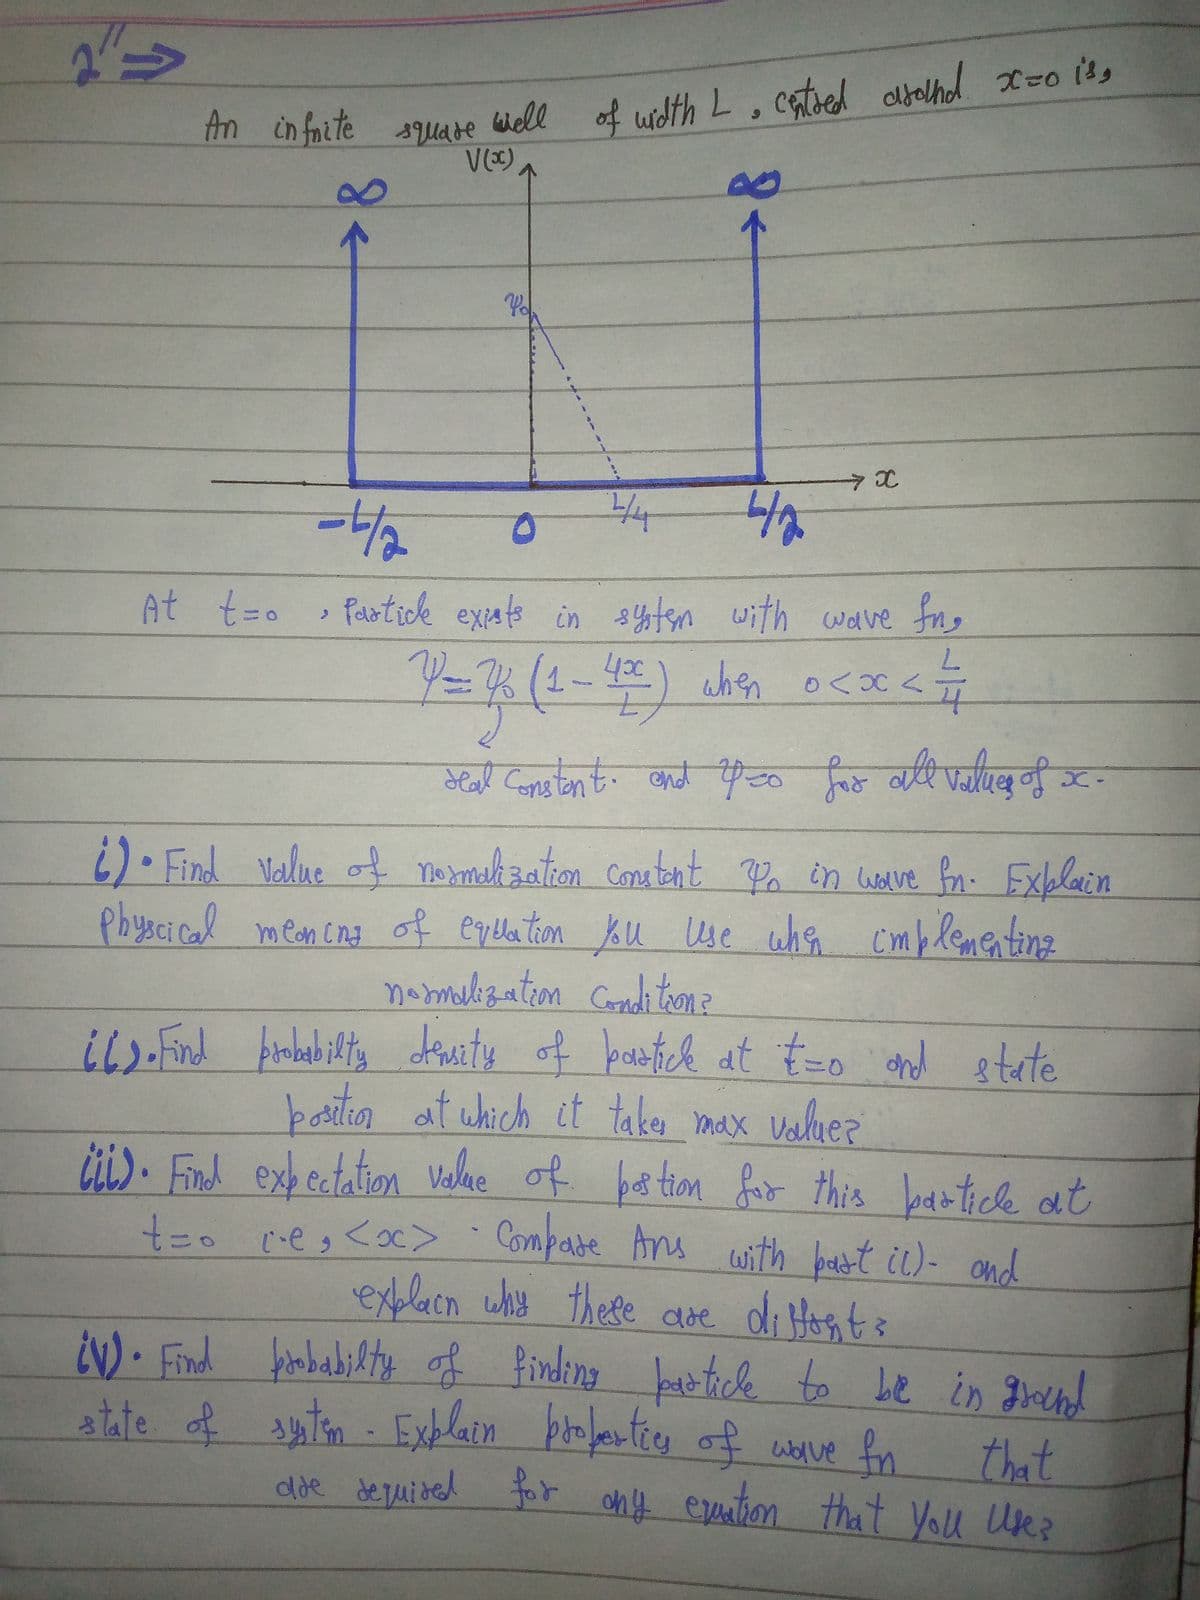 2" ⇒
An infnite square well of width L, centred around x=0 is,
V(x)
∞ ∞
ψ₀
→ x
-L/2 0 L/4 L/2
At t=0, Particle exists in system with wave fn,
ψ = ψ₀ (1 - 4x/L) when 0 < x < L/4
real Constant. and ψ=0 for all values of x.
i). Find Value of normalization Constant ψ₀ in wave fn. Explain
Physcical meaning of equation you use when implementing
normalization Condition?
ii). Find probabilty density of particle at t=0 and state
position at which it takes max value?
iii). Find expectation value of postion for this particle at
t=0 i.e, <x>. Compare Ans with part ii)- and
explain why these are diffrent?
iv). Find probabilty of finding particle to be in ground
state of system. Explain properties of wave fn that
are required for any equation that you use?